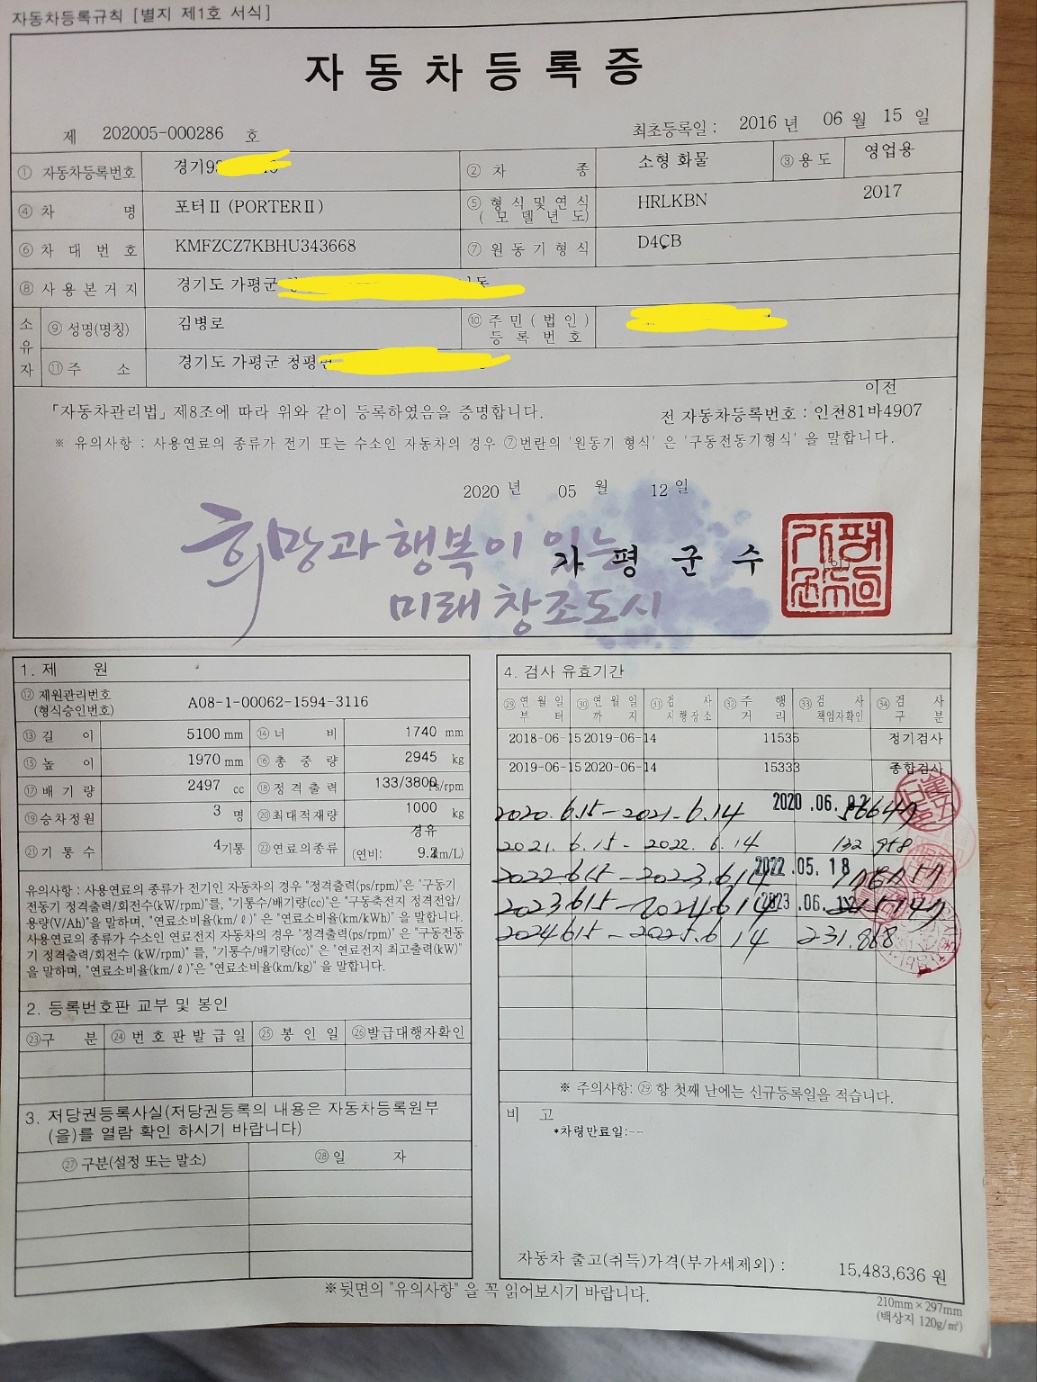 자동차등록규칙 [별지 제1호 서식]
자동차등록증
제 202005-000286 호
최초등록일 : 2016 년 06 월 15 일
① 자동차등록번호 경기9
② 차 종 소형 화물
③ 용도 영업용
④ 차 명 포터Ⅱ (PORTERⅡ)
⑤ 형식 및 연식 (모델년도) HRLKBN 2017
⑥ 차대번호 KMFZCZ7KBHU343668
⑦ 원동기형식 D4CB
⑧ 사용본거지 경기도 가평군
소유자
⑨ 성명(명칭) 김병로
⑩ 주민(법인)등록번호
⑪ 주 소 경기도 가평군 청평면
이전
「자동차관리법」 제8조에 따라 위와 같이 등록하였음을 증명합니다.
전 자동차등록번호 : 인천81바4907
※ 유의사항 : 사용연료의 종류가 전기 또는 수소인 자동차의 경우 ⑦번란의 '원동기 형식' 은 '구동전동기형식' 을 말합니다.
2020 년 05 월 12 일
희망과 행복이 있는
가평군수
미래창조도시
1. 제 원
⑫ 제원관리번호 (형식승인번호) A08-1-00062-1594-3116
⑬ 길 이 5100 mm ⑭ 너 비 1740 mm
⑮ 높 이 1970 mm ⑯ 총 중 량 2945 kg
⑰ 배 기 량 2497 cc ⑱ 정격출력 133/3800 ps/rpm
⑲ 승차정원 3 명 ⑳ 최대적재량 1000 kg
㉑ 기 통 수 4기통 ㉒ 연료의종류 경유 (연비: km/L)
유의사항 : 사용연료의 종류가 전기인 자동차의 경우 "정격출력(ps/rpm)"은 '구동기
전동기 정격출력/회전수(kW/rpm)"를, "기통수/배기량(cc)"은 "구동축전지 정격전압/
용량(V/Ah)을 말하며, "연료소비율(km/ℓ)" 은 "연료소비율(km/kWh)" 을 말합니다.
사용연료의 종류가 수소인 연료전지 자동차의 경우 "정격출력(ps/rpm)" 은 "구동전동
기 정격출력/회전수 (kW/rpm)" 를, "기통수/배기량(cc)" 은 "연료전지 최고출력(kW)"
을 말하며, "연료소비율(km/ℓ)"은 "연료소비율(km/kg)" 을 말합니다.
2. 등록번호판 교부 및 봉인
㉓구 분 ㉔번호판발급일 ㉕봉인일 ㉖발급대행자확인
3. 저당권등록사실(저당권등록의 내용은 자동차등록원부
(을)를 열람 확인 하시기 바랍니다)
㉗ 구분(설정 또는 말소) ㉘ 일 자
4. 검사 유효기간
㉙ 연월일부터 ㉚ 연월일까지 ㉛ 검사시행장소 ㉜ 주행거리 ㉝ 검사책임자확인 ㉞ 검사구분
2018-06-15 2019-06-14 11535 정기검사
2019-06-15 2020-06-14 15333 종합검사
2020. 6.15 - 2021. 6.14 2020.06.02
2021. 6.15 - 2022. 6.14 132 958
2022 6.15 - 2023. 6.14 2022.05.18
2023 6.15 - 2024 6.14 2023.06.12
2024 6.15 - 2025. 6 14 231.868
※ 주의사항: ㉙ 항 첫째 난에는 신규등록일을 적습니다.
비 고
*차령만료일:--
자동차 출고(취득)가격(부가세제외) : 15,483,636 원
※뒷면의 "유의사항" 을 꼭 읽어보시기 바랍니다.
210mm×297mm
(백상지 120g/㎡)